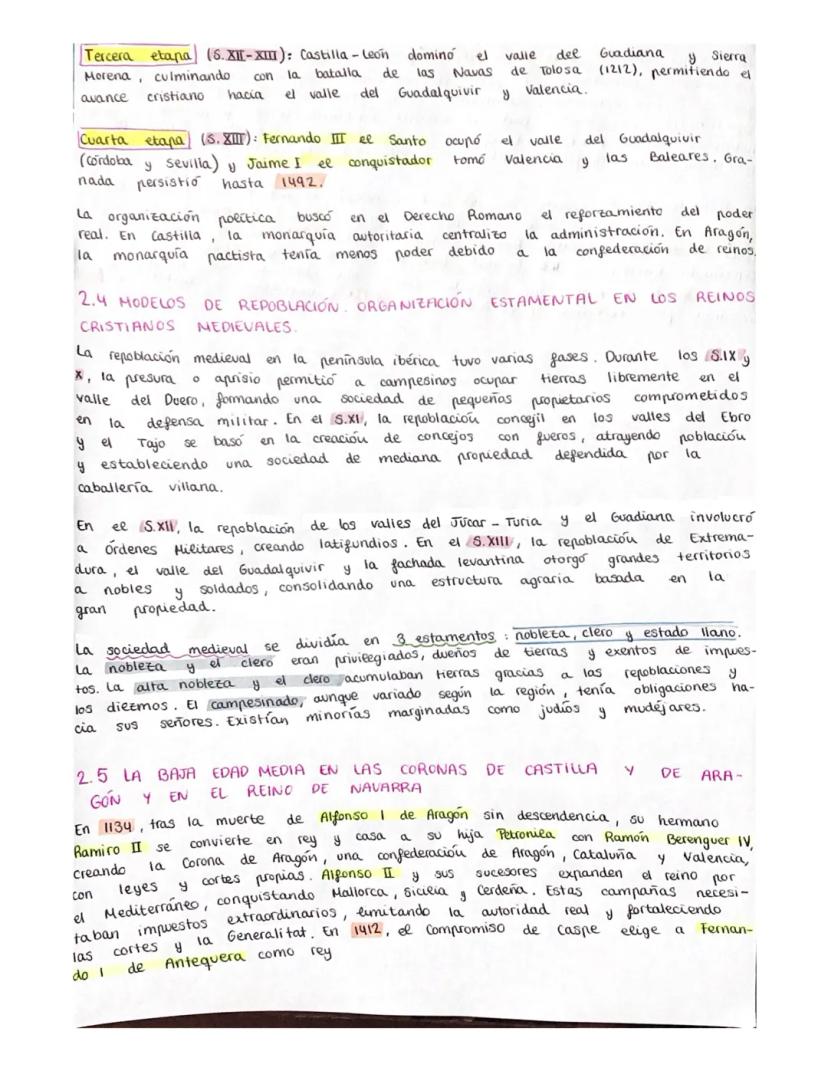 Tercera etapa (S. XII-XIII): Castilla-León dominó el valle del Guadiana y Sierra
Morena, culminando con la batalla de las Navas de Tolosa (1212), permitiendo el
avance cristiano hacia el valle del Guadalquivir y Valencia.
Cuarta etapa (S. XIII): Fernando III el Santo ocupó el valle del Guadalquivir
(Córdoba y Sevilla) y Jaime I el conquistador tomó Valencia y las Baleares. Gra-
nada persistió hasta 1492.
La organización política buscó en el Derecho Romano el reforzamiento del poder
real. En Castilla, la monarquía autoritaria centralizo la administración. En Aragón,
la monarquía pactista tenía menos poder debido a la confederación de reinos.
2.4 MODELOS DE REPOBLACIÓN. ORGANIZACIÓN ESTAMENTAL EN LOS REINOS
CRISTIANOS MEDIEVALES.
La repoblación medieval en la península ibérica tuvo varias fases. Durante los S.IX y
X, la presura o aprisio permitió a campesinos ocupar tierras libremente en el
valle del Duero, formando una sociedad de pequeños propietarios comprometidos
en la defensa militar. En el S.XI, la repoblación concejil en los valles del Ebro
y el Tajo se basó en la creación de concejos con fueros, atrayendo población
y estableciendo una sociedad de mediana propiedad defendida por la
caballería villana.
En el S.XII, la repoblación de los valles del Júcar - Turia y el Guadiana involucró
a Órdenes Militares, creando latifundios. En el S.XIII, la repoblación de Extrema-
dura, el valle del Guadalquivir y la fachada levantina otorgó grandes territorios
a nobles y soldados, consolidando una estructura agraria basada en la
gran propiedad.
La sociedad medieval se dividía en 3 estamentos: nobleza, clero y estado llano.
La nobleza y el clero eran privilegiados, dueños de tierras y exentos de impues-
tos. La alta nobleza y el clero acumulaban tierras gracias a las repoblaciones y
los diezmos. El campesinado, aunque variado según la región, tenía obligaciones ha-
cia sus señores. Existían minorías marginadas como judíos y mudéjares.
2.5 LA BAJA EDAD MEDIA EN LAS CORONAS DE CASTILLA Y DE ARA-
GÓN Y EN EL REINO DE NAVARRA
En 1134, tras la muerte de Alfonso I de Aragón sin descendencia, su hermano
Ramiro II se convierte en rey y casa a su hija Petronila con Ramón Berenguer IV,
creando la Corona de Aragón, una confederación de Aragón, Cataluña y Valencia,
con leyes y cortes propias. Alfonso II y sus sucesores expanden el reino por
el Mediterráneo, conquistando Mallorca, Sicilia y Cerdeña. Estas campañas necesi-
taban impuestos extraordinarios, limitando la autoridad real y fortaleciendo
las cortes y la Generalitat. En 1412, el Compromiso de Caspe elige a Fernan-
do I de Antequera como rey